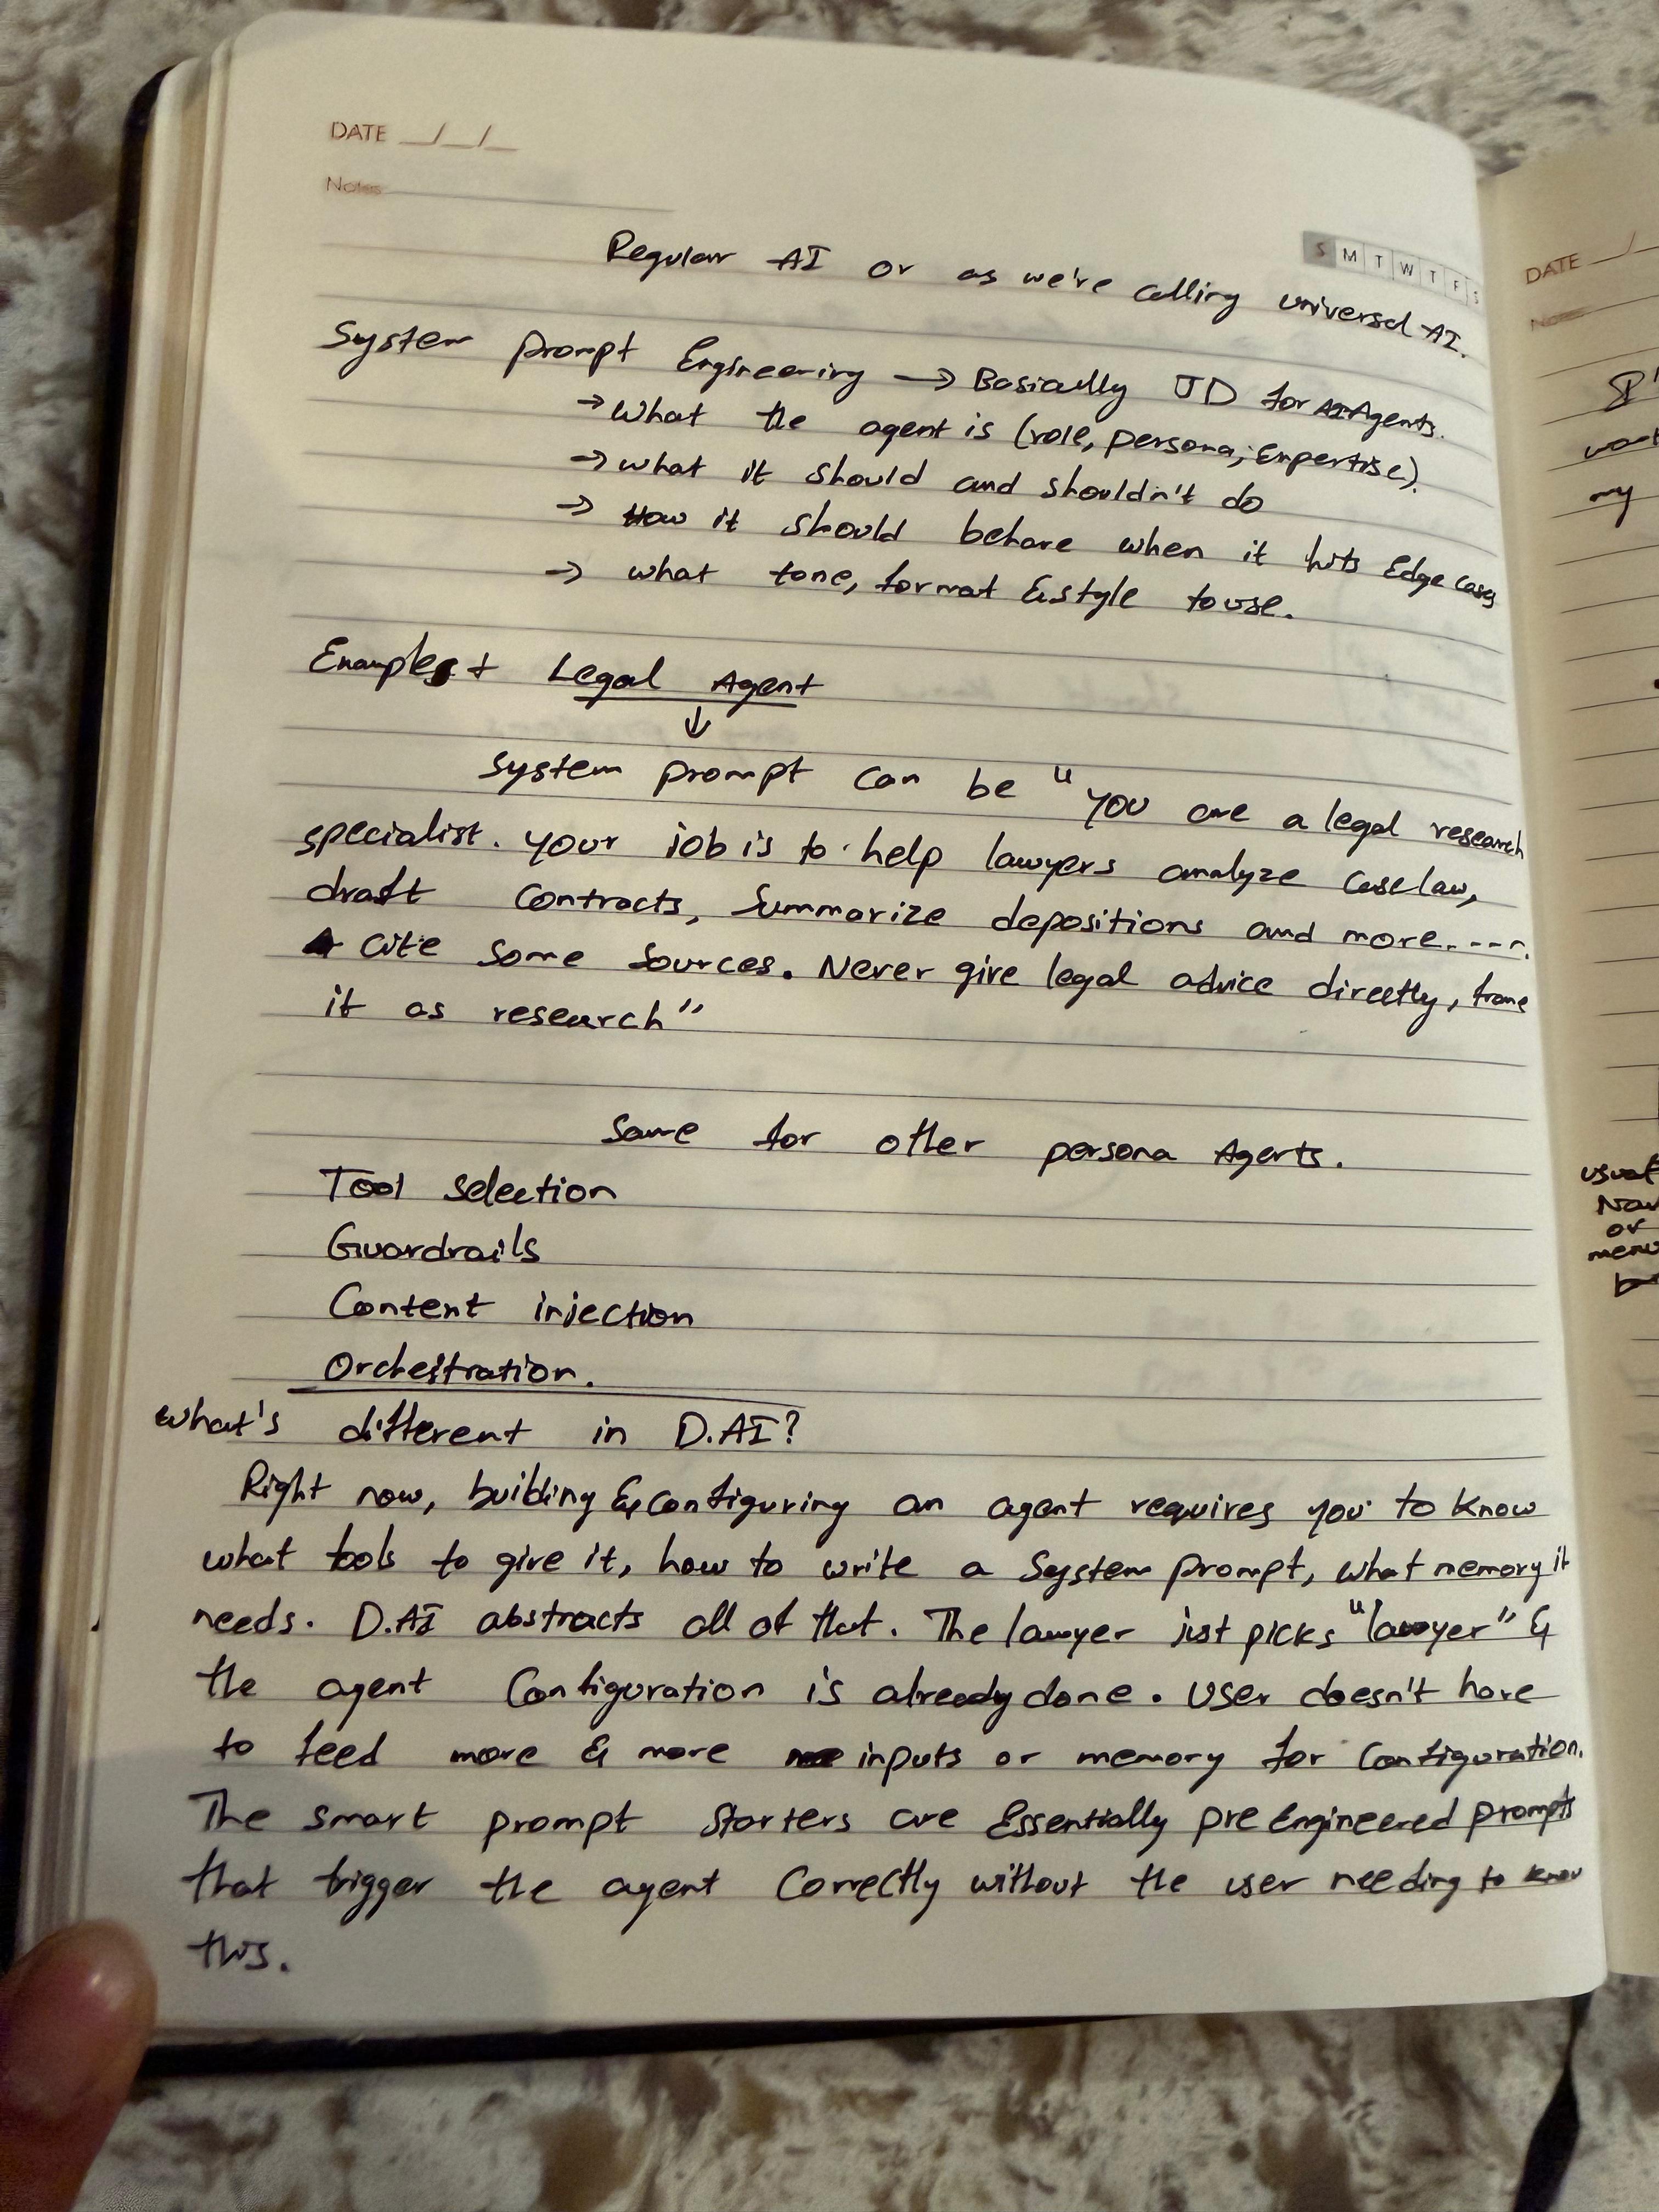 DATE __/__/__
Notes
S M T W T F S
Regular AI or as we're calling universal AI.
System prompt Engineering → Basically JD for AI Agents.
→ What the agent is (role, persona, Expertise).
→ what it should and shouldn't do
→ How it should behave when it hits Edge cases
→ what tone, format & style to use.
Examples + Legal Agent
↓
system prompt can be "you are a legal research
specialist. your job is to help lawyers analyze case law,
draft contracts, summarize depositions and more....
cite some sources. Never give legal advice directly, frame
it as research"
Same for other persona Agents.
Tool selection
Guardrails
Content injection
Orchestration.
what's different in D.AI?
Right now, building & configuring an agent requires you to know
what tools to give it, how to write a System prompt, what memory it
needs. D.AI abstracts all of that. The lawyer just picks "lawyer" &
the agent Configuration is already done. User doesn't have
to feed more & more inputs or memory for Configuration.
The smart prompt starters are Essentially pre Engineered prompts
that trigger the agent Correctly without the user needing to know
this.
DATE
Notes
my
or